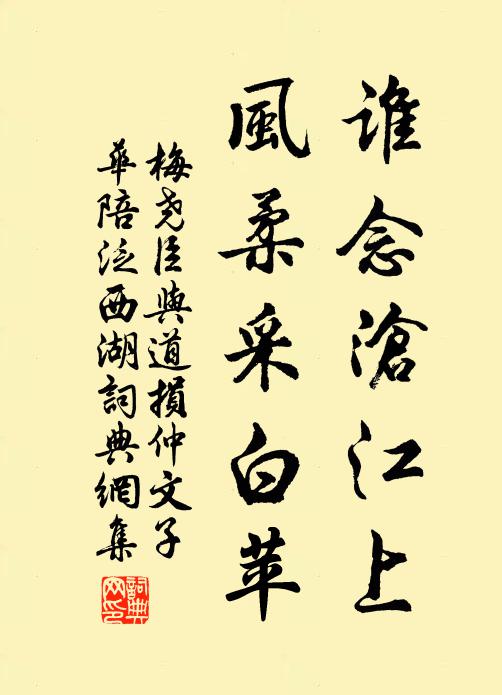 誰念滄江上
風柔采白苹
梅堯臣與道損仲文子
華陪泛西湖詞典網集
詞典
网印